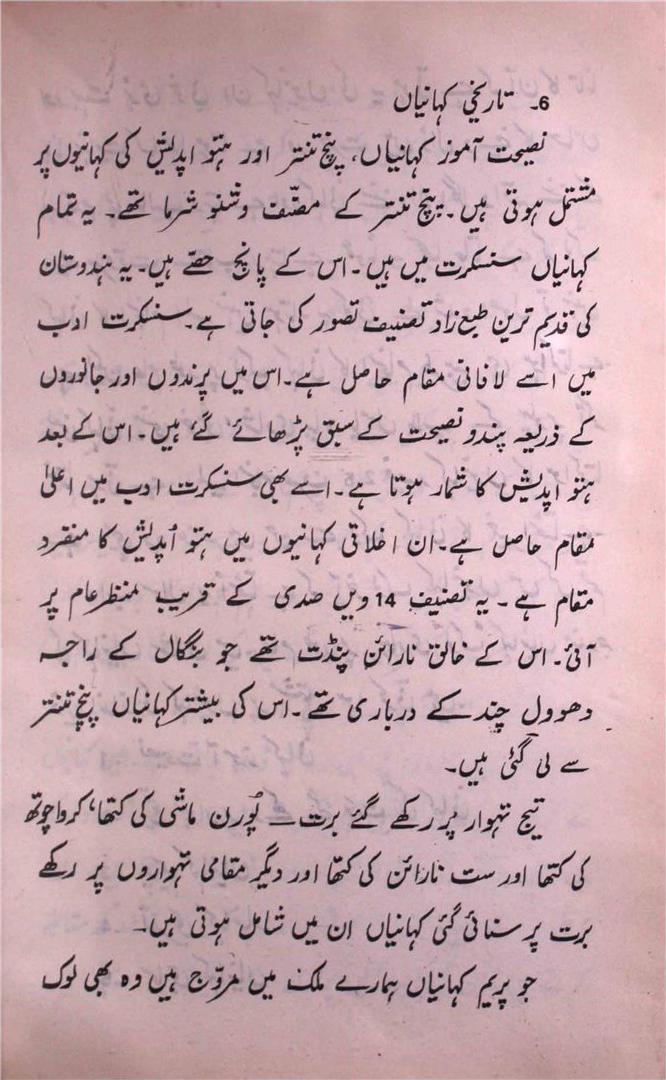 6۔ تاریخی کہانیاں
نصیحت آموز کہانیاں، پنچ تنتر اور ہتو اپدیش کی کہانیوں پر
مشتمل ہوتی ہیں۔ پنچ تنتر کے مصنّف وشنو شرما تھے۔ یہ تمام
کہانیاں سنسکرت میں ہیں۔ اس کے پانچ حصّے ہیں۔ یہ ہندوستان
کی قدیم ترین طبع زاد تصنیف تصور کی جاتی ہے۔ سنسکرت ادب
میں اسے لافانی مقام حاصل ہے۔ اس میں پرندوں اور جانوروں
کے ذریعہ پند و نصیحت کے سبق پڑھائے گئے ہیں۔ اس کے بعد
ہتو اپدیش کا شمار ہوتا ہے۔ اسے بھی سنسکرت ادب میں اعلیٰ
مقام حاصل ہے۔ ان اخلاقی کہانیوں میں ہتو اُپدیش کا منفرد
مقام ہے۔ یہ تصنیف 14 ویں صدی کے قریب منظر عام پر
آئی۔ اس کے خالق نارائن پنڈت تھے جو بنگال کے راجہ
دھوول چند کے درباری تھے۔ اس کی بیشتر کہانیاں پنچ تنتر
سے لی گئی ہیں۔
تیج تہوار پر رکھے گئے برت — پُورن ماشی کی کتھا، کرواچوتھ
کی کتھا اور ست نارائن کی کتھا اور دیگر مقامی تہواروں پر رکھے
برت پر سنائی گئی کہانیاں ان میں شامل ہوتی ہیں۔
جو پریم کہانیاں ہمارے ملک میں مروّج ہیں وہ بھی لوک